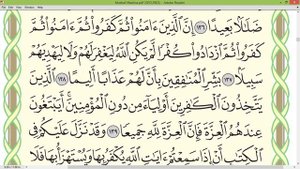 Mushaf Madina.pdf (SECURED) - Adobe Reader
ضَلَٰلًۢا بَعِيدًا ١٣٦ إِنَّ ٱلَّذِينَ ءَامَنُوا۟ ثُمَّ كَفَرُوا۟ ثُمَّ ءَامَنُوا۟ ثُمَّ
كَفَرُوا۟ ثُمَّ ٱزْدَادُوا۟ كُفْرًا لَّمْ يَكُنِ ٱللَّهُ لِيَغْفِرَ لَهُمْ وَلَا لِيَهْدِيَهُمْ
سَبِيلًۢا ١٣٧ بَشِّرِ ٱلْمُنَٰفِقِينَ بِأَنَّ لَهُمْ عَذَابًا أَلِيمًا ١٣٨ ٱلَّذِينَ
يَتَّخِذُونَ ٱلْكَٰفِرِينَ أَوْلِيَآءَ مِن دُونِ ٱلْمُؤْمِنِينَ أَيَبْتَغُونَ
عِندَهُمُ ٱلْعِزَّةَ فَإِنَّ ٱلْعِزَّةَ لِلَّهِ جَمِيعًا ١٣٩ وَقَدْ نَزَّلَ عَلَيْكُمْ فِى
ٱلْكِتَٰبِ أَنْ إِذَا سَمِعْتُمْ ءَايَٰتِ ٱللَّهِ يُكْفَرُ بِهَا وَيُسْتَهْزَأُ بِهَا فَلَا